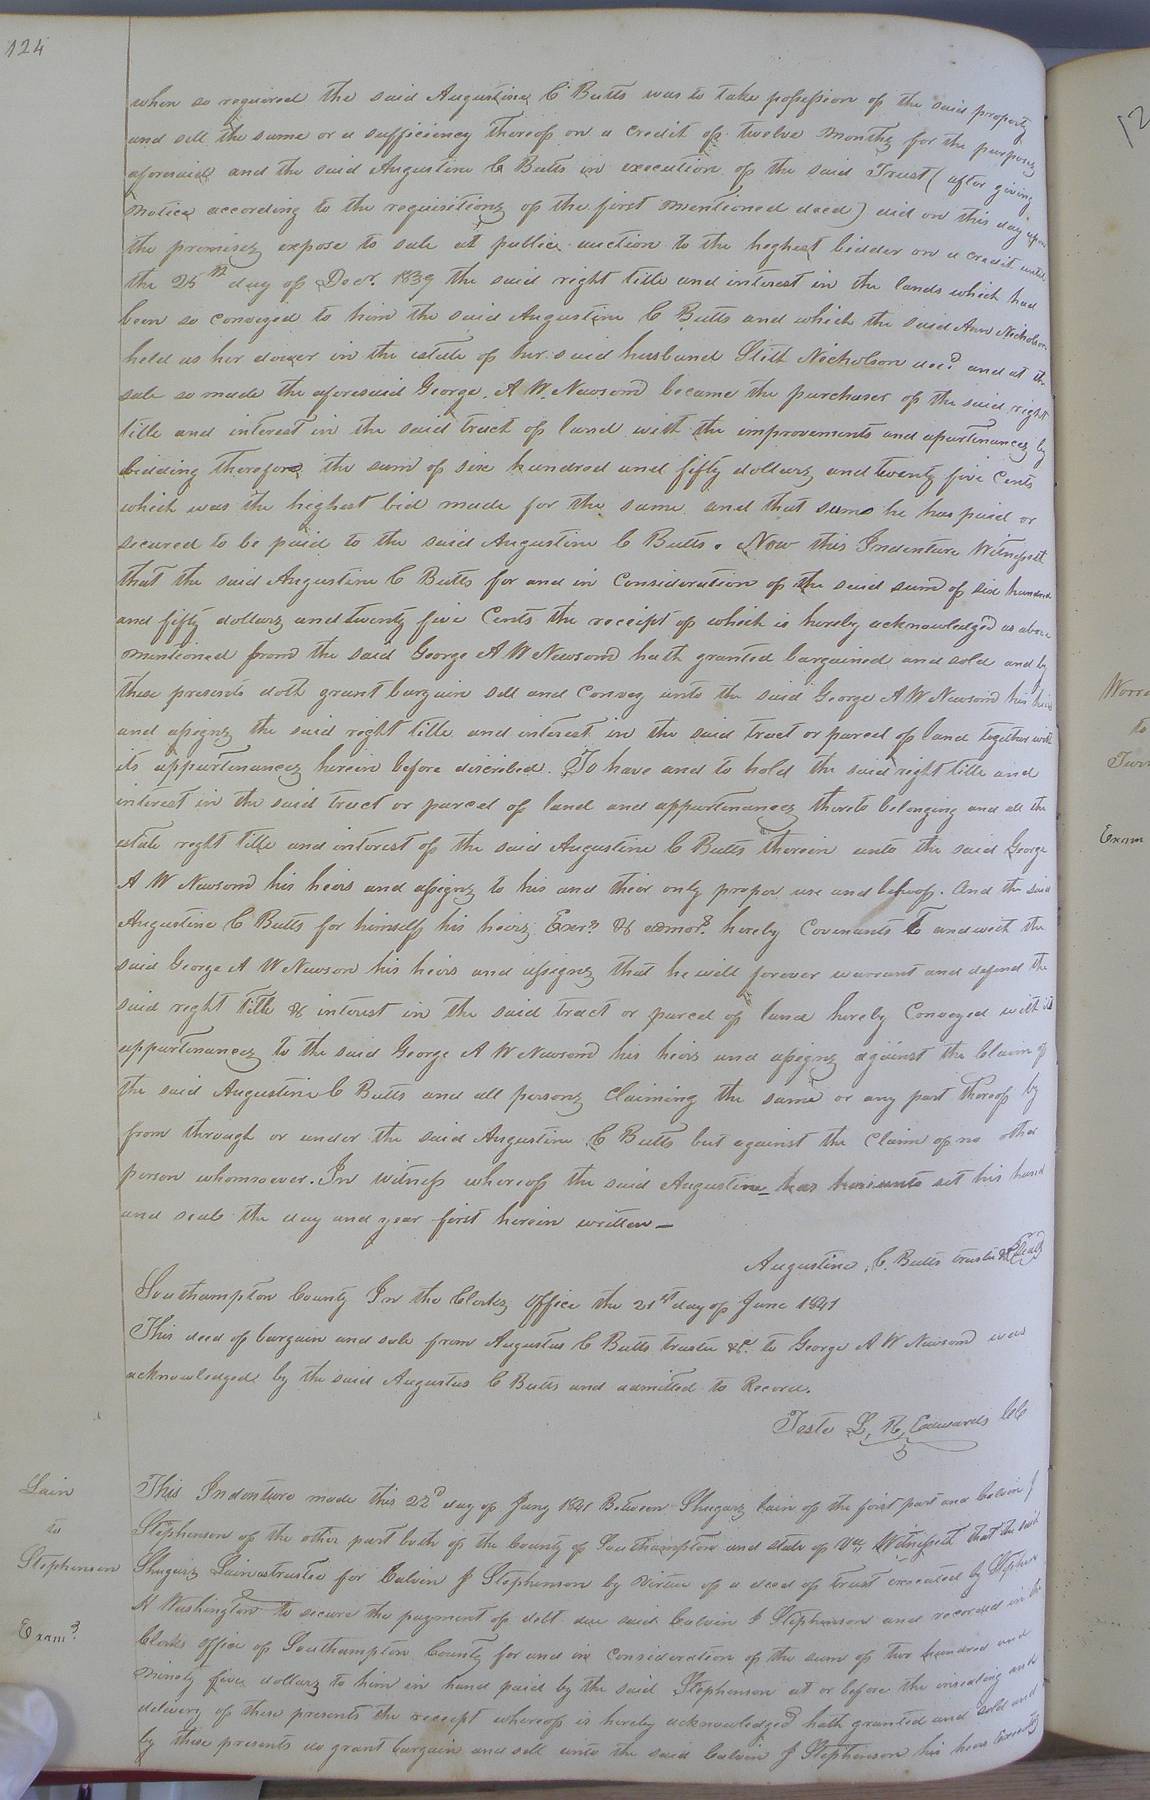 124
when so required the said Augustine C Butts was to take possession of the said property
and sell the same or a sufficiency thereof on a credit of twelve months for the purposes
aforesaid and the said Augustine C Butts in execution of the said Trust ( after giving
notice according to the requisitions of the first mentioned deed ) did on this day upon
the premises expose to sale at public auction to the heghest bidder on a credit until
the 25th day of Decr. 1839 the said right title and interest in the lands which had
been so conveyed to him the said Augustine C Butts and which the said Ann Nicholson
held as her dower in the estate of her said husband Stith Nicholson decd. and at the
sale so made the aforesaid George. A W. Newsom became the purchaser of the said right
title and interest in the said tract of land with the improvements and apurtenances by
bidding therefore the sum of six hundred and fifty dollars and twenty five Cents
which was the highest bid made for the same and that sum he has paid or
secured to be paid to the said Augustine C Butts. Now this Indenture Witnesseth
that the said Augustine C Butts for and in Consideration of the said sum of six hundred
and fifty dollars and twenty five Cents the receipt of which is hereby acknowledged as above
mentioned from the said George A W Newsom hath granted bargained and sold and by
these presents doth grant bargain sell and Convey unto the said George A W Newsom his heirs
and assigns the said right title and interest in the said tract or parcel of land together with
its appurtenances herein before discribed. To have and to hold the said right title and
interest in the said tract or parcel of land and appurtenances thereto belonging and all the
estate right title and interest of the said Augustine C Butts therein unto the said George
A W Newsom his heirs and assigns to his and their only proper use and behoof. And the said
Augustine C Butts for himself his heirs Exers. & admors. hereby Covenants to and with the
said George A W Newson his heirs and assigns that he will forever warrant and defend the
said right title & interest in the said tract or parcel of land hereby Conveyed with its
appurtenances to the said George A W Newsom his heirs and assigns against the Claim of
the said Augustine C Butts and all persons Claiming the same or any part thereof by
from through or under the said Augustine C Butts but against the Claim of no other
person whomsoever. In witness whereof the said Augustine has hereunto set his hand
and seal the day and year first herein written
Augustine. C. Butts trustee &c Seal
Southampton County In the Clerks Office the 21st day of June 1841
This deed of bargain and sale from Augustus C Butts trustee &c. to George A W Newsom was
acknowledged by the said Augustus C Butts and admitted to Record.
Teste L. R. Edwards CC
Lain
to
Stephenson
Examd.
This Indenture made this 22d day of Jany 1841 Between Shugars Lain of the first part and Calvin J
Stephenson of the other part both of the County of Southampton and state of Va. Witnesseth that the said
Shugars Lain as trustee for Calvin J Stephenson by virtue of a deed of trust executed by Stephen
H Washington to secure the payment of debt due said Calvin J Stephenson and recorded in the
Clerks Office of Southampton County for and in consideration of the sum of two hundred and
Ninety five dollars to him in hand paid by the said Stephenson at or before the ensealing and
delivery of these presents the receipt whereof is hereby acknowledged hath granted and sold and
by these presents do grant bargain and sell unto the said Calvin J Stephenson his heirs Executors
12
to
Exam